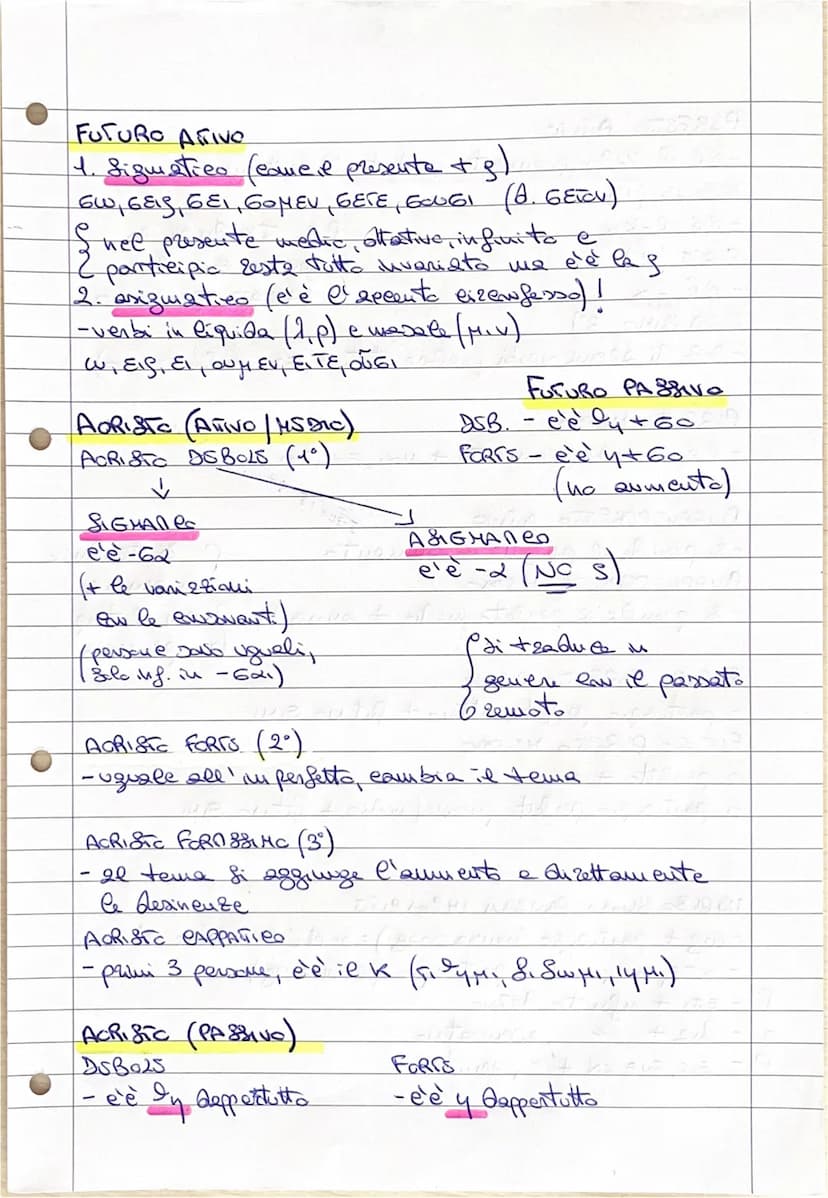 FUTURO ATTIVO
1. Sigmatico (come il presente + ς)
σω, σεις, σει, σομεν, σετε, σουσι (D. σετον)
nel presente medio, ottativo, infinito e
participio resta tutto invariato ma c'è la ς
2. asigmatico (c'è l'accento circonflesso)!
- verbi in liquida (λ, ρ) e nasale (μ, ν)
ω, εις, ει, ουμεν, ειτε, οῦσι
FUTURO PASSIVO
DEB. - c'è θη + σο
FORTE - c'è η + σο
(no aumento)
AORISTO (ATTIVO / MEDIO)
AORISTO DEBOLE (1°)
SIGMATICO
c'è -σα
(+ le variazioni
con le consonanti)
(persone sono uguali,
solo inf. in -σαι)
ASIGMATICO
c'è -α (NO S)
si traduce in
genere con il passato
remoto
AORISTO FORTE (2°)
- uguale all'imperfetto, cambia il tema
AORISTO FORTISSIMO (3°)
- al tema si aggiunge l'aumento e direttamente
le desinenze
AORISTO CAPPATICO
- primi 3 persone, c'è il κ (τιθημι, διδωμι, ιημι)
AORISTO (PASSIVO)
DEBOLE
- c'è θη dappertutto
FORTE
- c'è η dappertutto